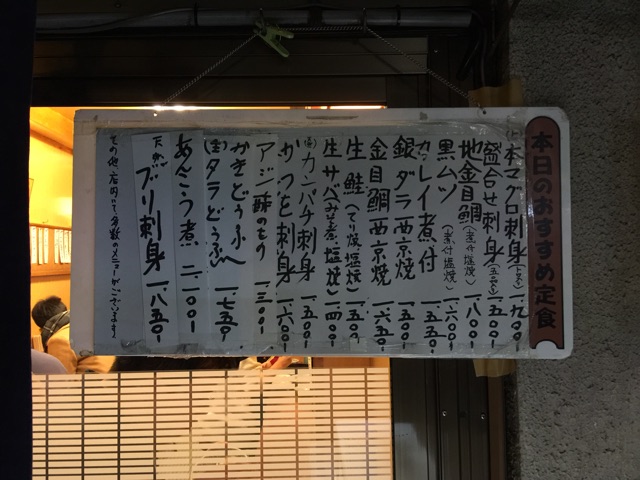 本日のおすすめ定食
本マグロ刺身 一.九〇〇
盛合せ刺身 一.五〇〇
地金目鯛(煮付 塩焼) 一.八〇〇
黒ムツ(煮付塩焼) 一.六〇〇
カレイ煮付 一.五五〇
銀ダラ西京焼 一.五〇〇
金目鯛西京焼 一.六五〇
生鮭(てり焼.塩焼) 一.五〇〇
生サバ(みそ煮.塩焼) 一.四〇〇
カンパチ刺身 一.五〇〇
かつを刺身 一.六〇〇
アジ酢のもの 一.三〇〇
かきどうふ
タラどうふ 一.七五〇
あんこう煮 二.一〇〇
天然ブリ刺身 一.八五〇
その他、店内にて多数のメニューがございます